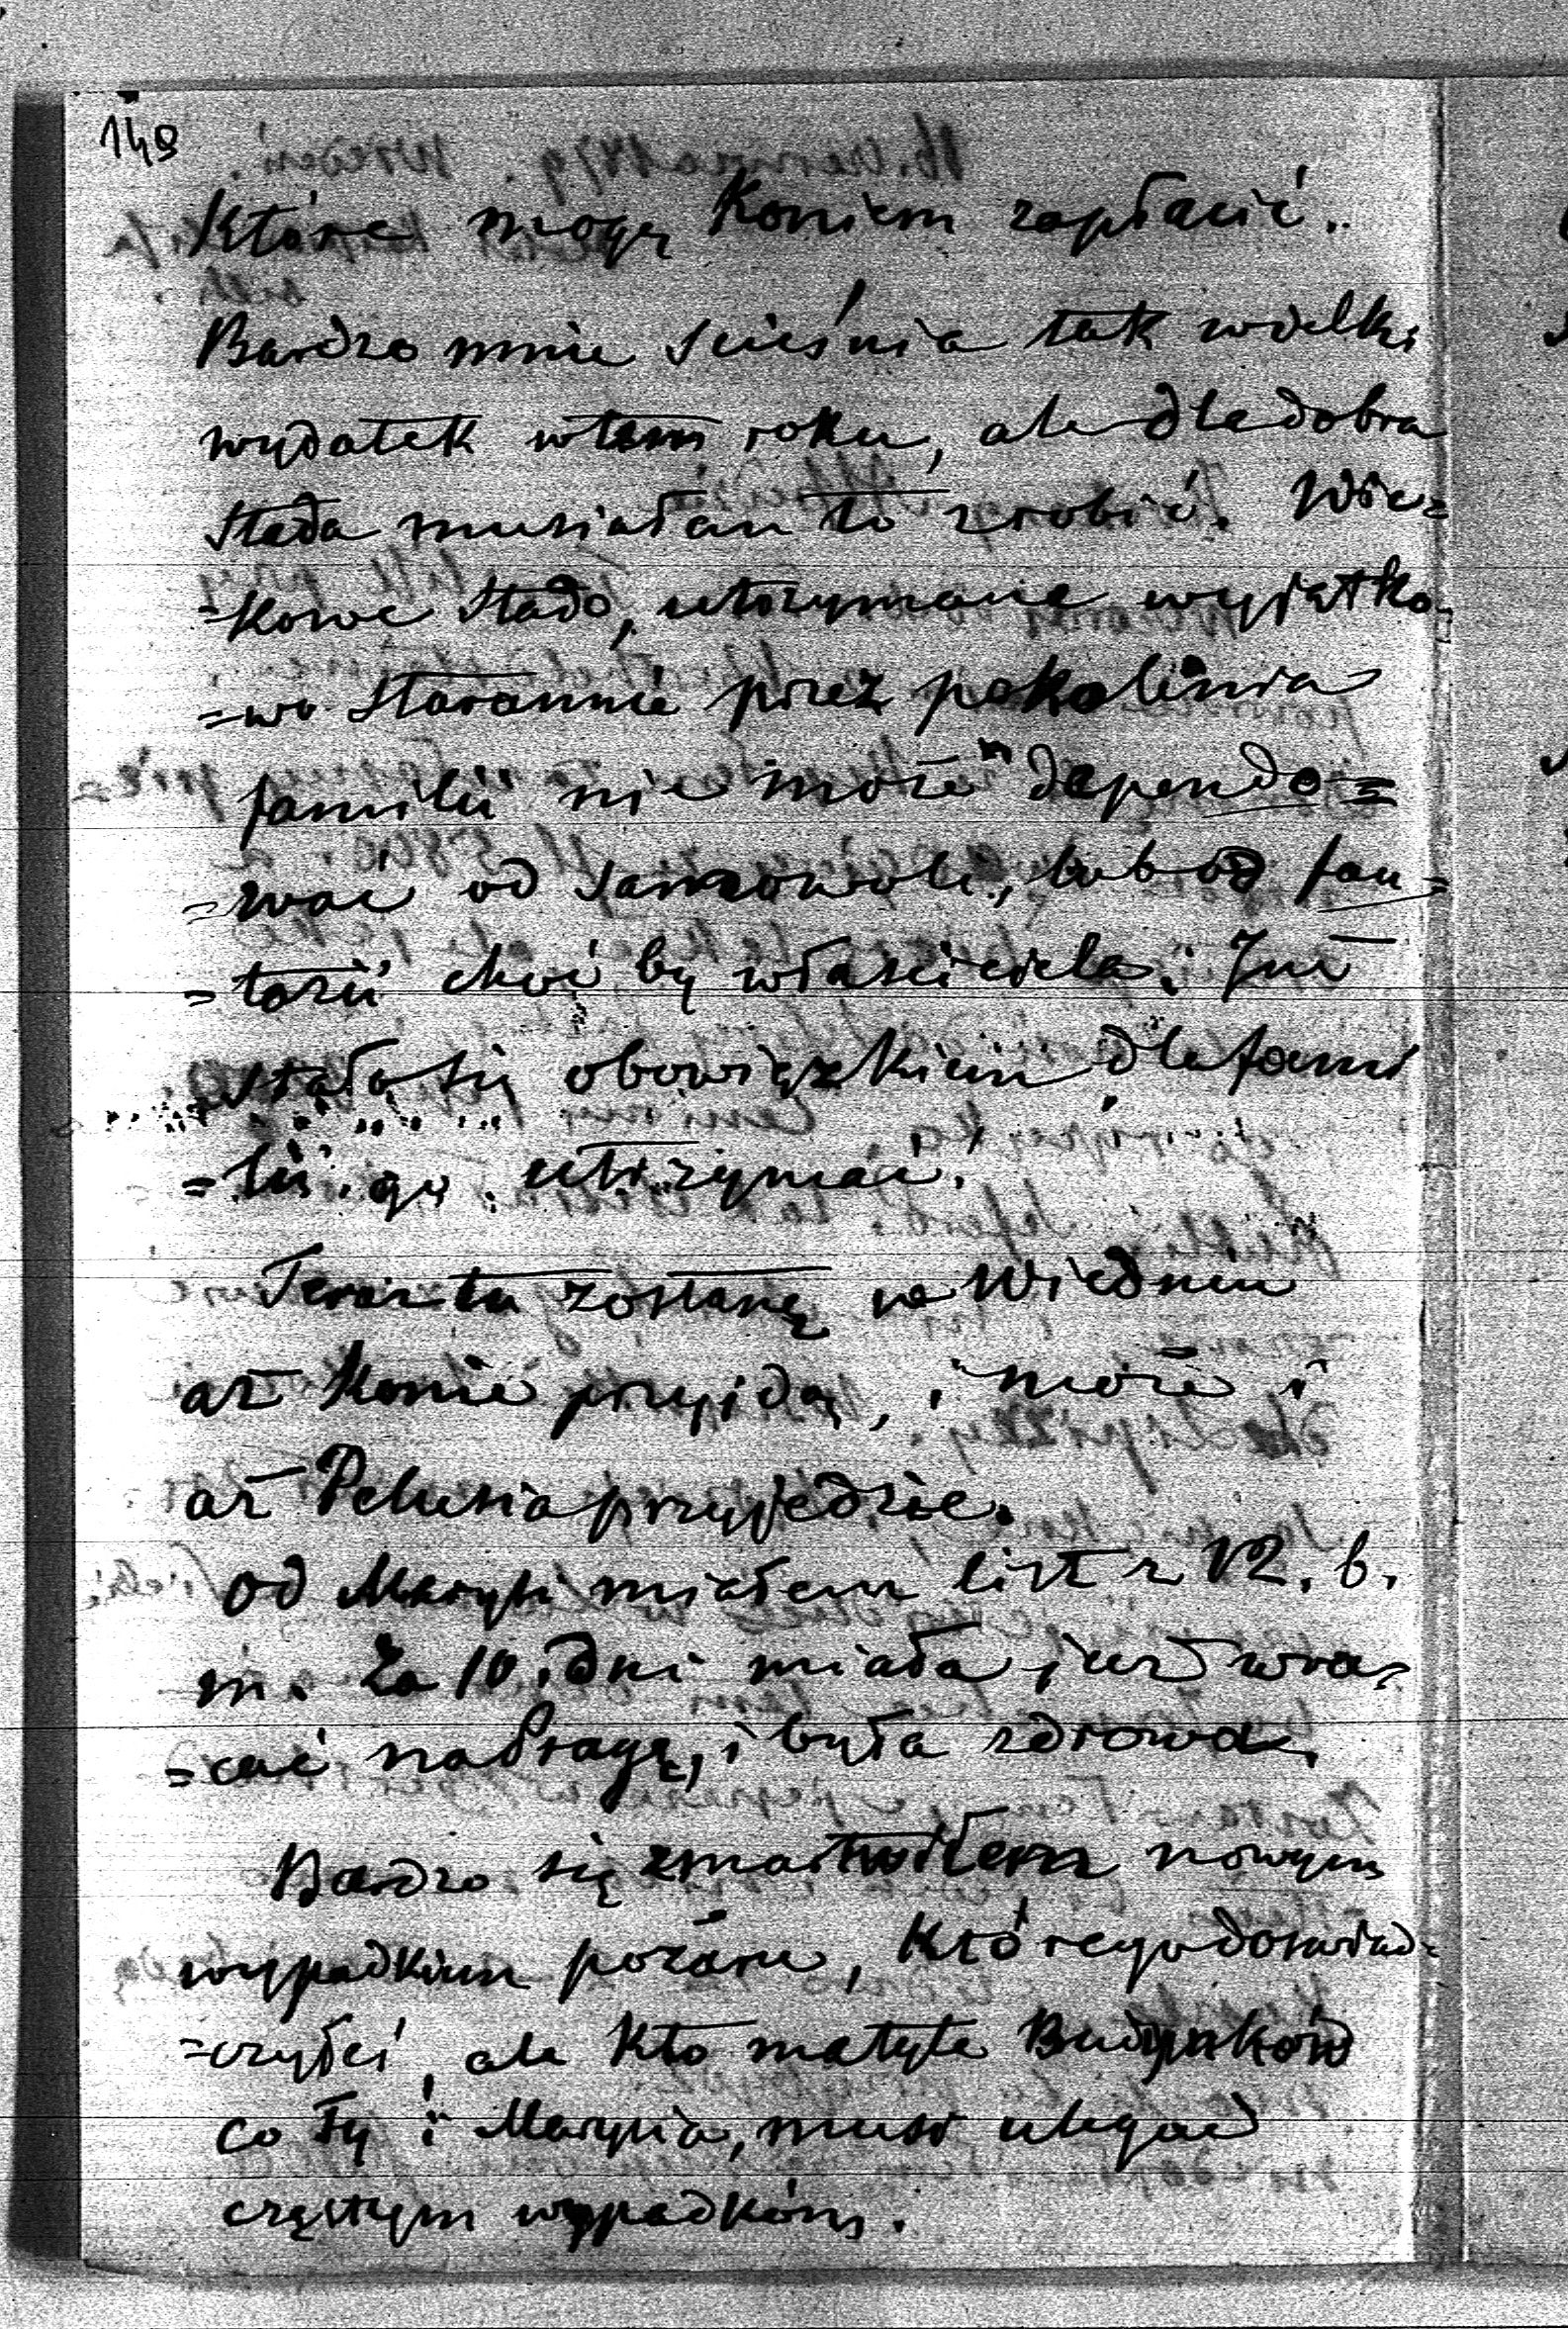 148
Które mogę Koniem zapłacić..
Bardzo mnie scieśnia tak wielki
wydatek w tem roku, ale dla dobra
Stada musiałam to zrobić. Wie=
=kowe Stado, utrzymane wyjątko=
=wo Starannie przez pokolenia
familii nie może dependo=
=wać od samowoli, lub od fan=
=tazii choć by właściciela. Już
stało się obowiązkiem dla fami
=lii go utrzymać.
Teraz tu zostanę w Wiedniu
aż Konie przyjdą, i może i
aż Pelusia przyjedzie.
od Marysi miałem list z 12. b.
m. Za 10. dni miała już wra=
=cać na Pragę, i była zdrowa.
Bardzo się zmartwiłem nowym
wypadkiem pożaru, którego doświad=
=czyłeś, ale kto ma tyle Budynków
co Ty i Marysia, musi ulegać
częstym wypadkóm.